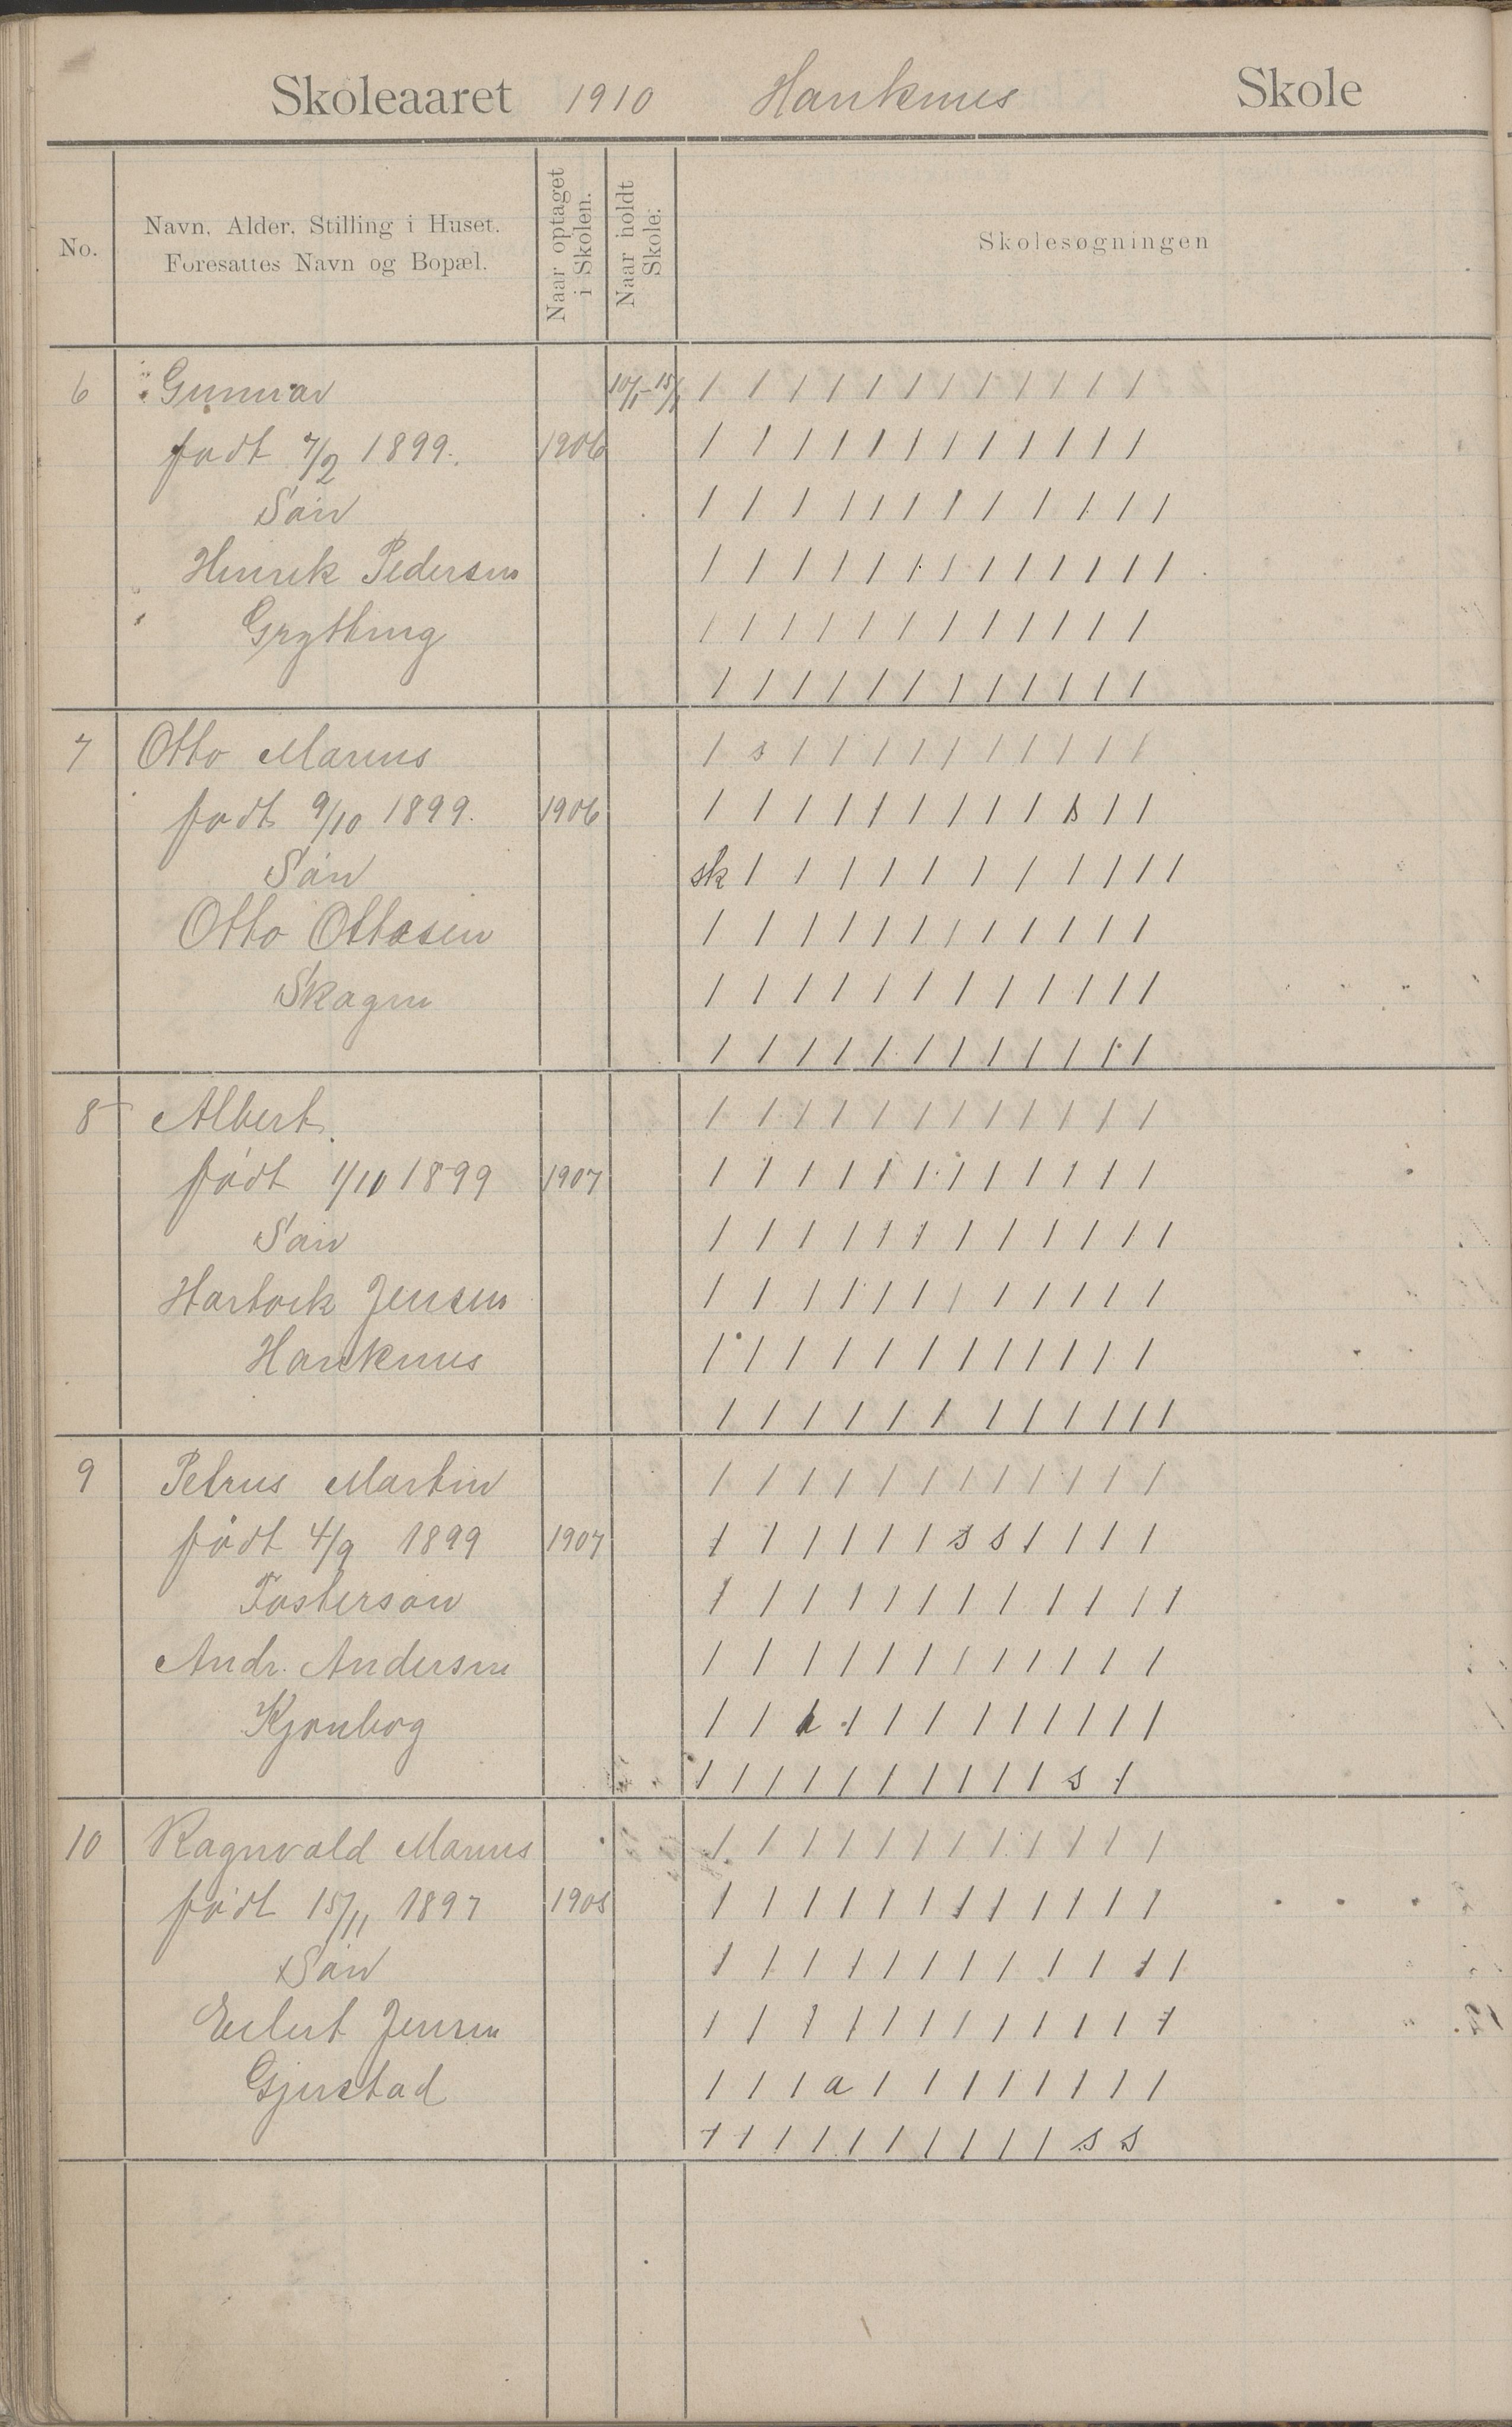 Skoleaaret 1910 Hanknes Skole
No. Navn, Alder, Stilling i Huset. Foresattes Navn og Bopæl. Naar optaget i Skolen. Naar holdt Skole. Skolesøgningen
6 Gunnar 10/1-15/1 / / / / / / / / / / / /
født 7/2 1899. 1906 / / / / / / / / / / / /
Søn / / / / / / / / / / / /
Henrik Pedersen / / / / / / / / / / / / /
Grytting / / / / / / / / / / / /
/ / / / / / / / / / / /
7 Otto Marius / s / / / / / / / / / /
født 9/10 1899. 1906 / / / / / / / / / s / /
Søn sk / / / / / / / / / / /
Otto Ottesen / / / / / / / / / / / /
Skagen / / / / / / / / / / / /
/ / / / / / / / / / / /
8 Albert. / / / / / / / / / / / /
født 1/10 1899 1907 / / / / / / / / / / / /
Søn / / / / / / / / / / / /
Hartvik Jensen / / / / / / / / / / / /
Hanknes / / / / / / / / / / / /
/ / / / / / / / / / / /
9 Petrus Martin / / / / / / / / / / / /
født 4/9 1899 1907 / / / / / / s s / / / /
Fostersøn / / / / / / / / / / / /
Andr. Andersen / / / / / / / / / / / /
/ / / / / / / / / / /
/ / / / / / / / / / s /
10 Ragnvald Marius / / / / / / / / / / / /
født 15/11 1897 1905 / / / / / / / / / / / /
Søn / / / / / / / / / / / /
Eilert Jensen / / / / / / / / / / / /
Gjerstad / / / a / / / / / / / /
/ / / / / / / / / / s s